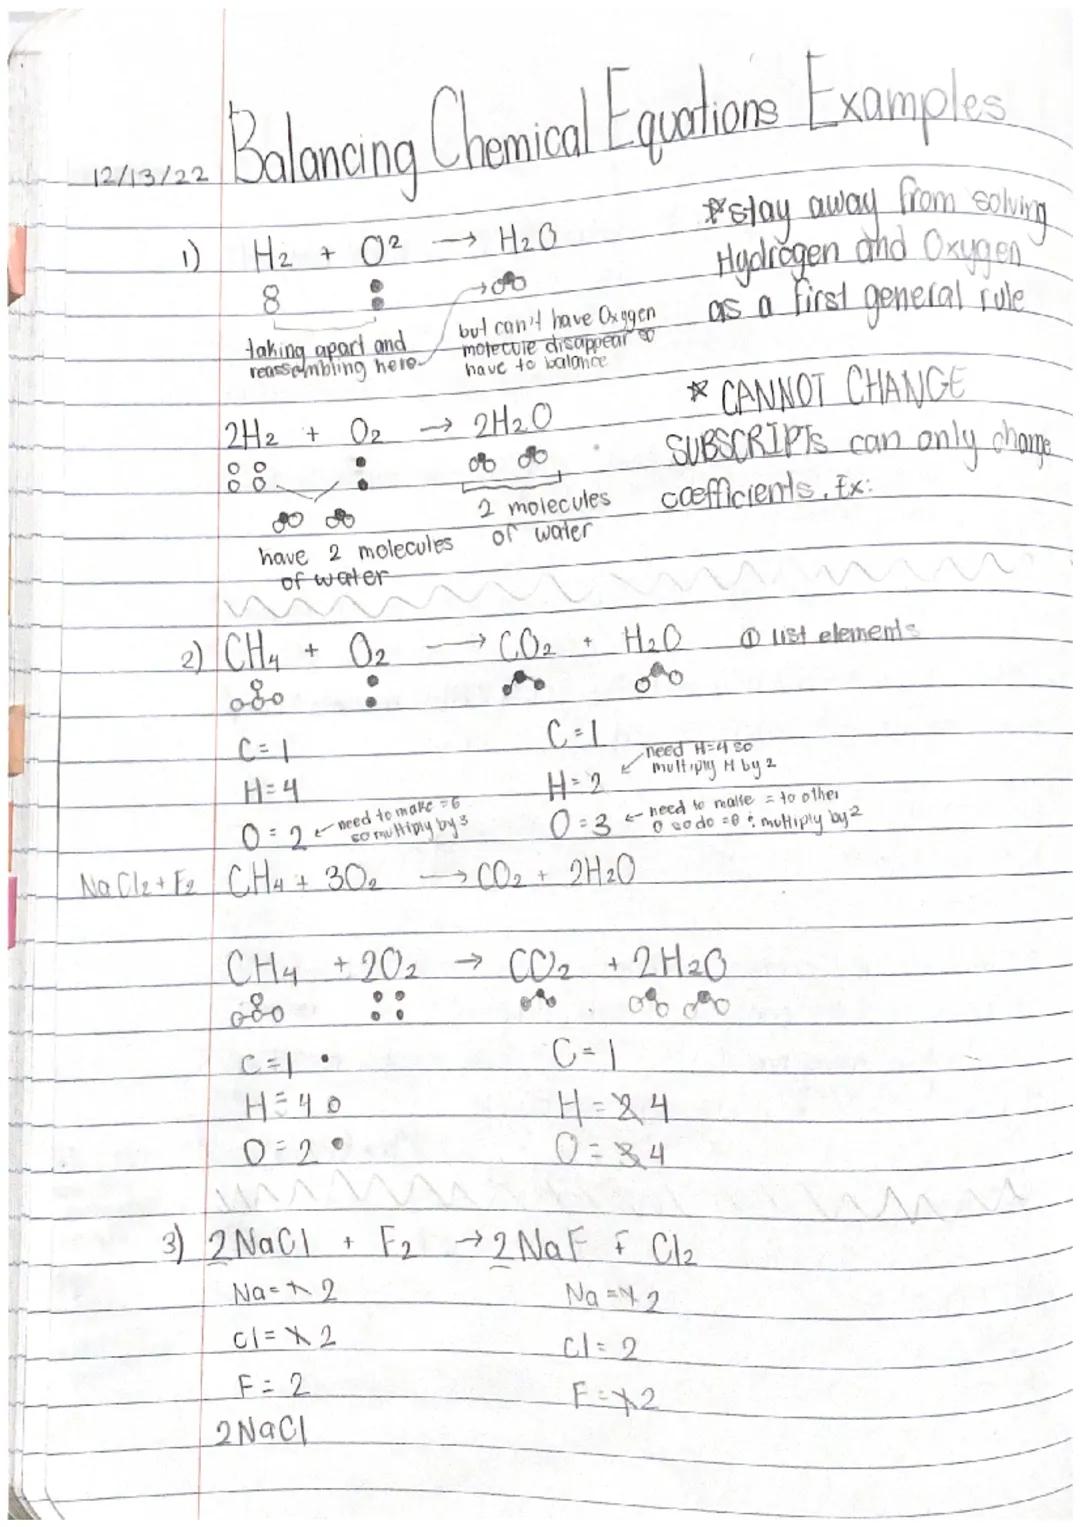 Balancing Chemical Equations Examples
12/13/22
1) H2 + O2 → H2O
*stay away from solving
Hydrogen and Oxygen
as a first general rule
taking apart and
reassembling here
but can't have Oxygen
molecule disappear
have to balance
* CANNOT CHANGE
SUBSCRIPTs can only change
coefficients. Ex:
2H2 + O2 → 2H2O
2 molecules
of water
have 2 molecules
of water
2) CH4 + O2 → CO2 + H2O ① list elements
C = 1 C = 1
H = 4 H = 2 ← need H=4 so
multiply H by 2
O = 2 ← need to make =6
so multiply by 3
O = 3 ← need to make = to other
O so do =6 ∴ multiply by 2
NaCl2 + F2
CH4 + 3O2 → CO2 + 2H2O
CH4 + 2O2 → CO2 + 2H2O
C = 1 C = 1
H = 4 H = 2 4
O = 2 O = 3 4
3) 2NaCl + F2 → 2NaF + Cl2
Na = 1 2 Na = 1 2
Cl = 1 2 Cl = 2
F = 2 F = 1 2
2NaCl